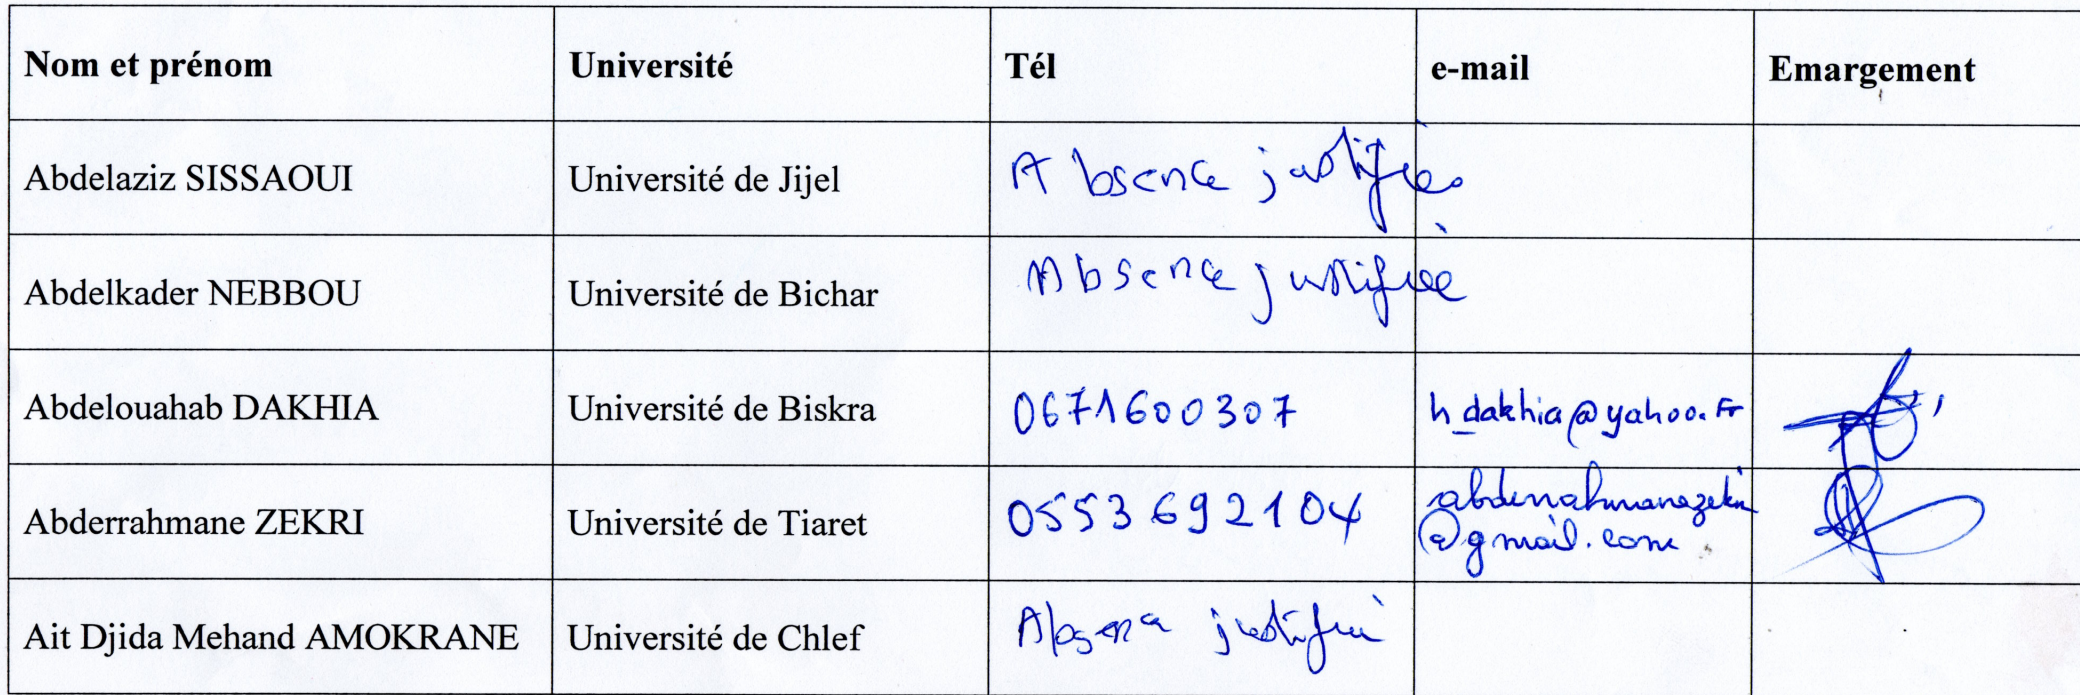 Nom et prénom Université Tél e-mail Emargement
Abdelaziz SISSAOUI Université de Jijel Absence justifiée
Abdelkader NEBBOU Université de Bichar Absence justifiée
Abdelouahab DAKHIA Université de Biskra 0671600307 h_dakhia@yahoo.Fr
Abderrahmane ZEKRI Université de Tiaret 0553 692104 abderrahmanezekri
@gmail.com
Ait Djida Mehand AMOKRANE Université de Chlef Absence justifié